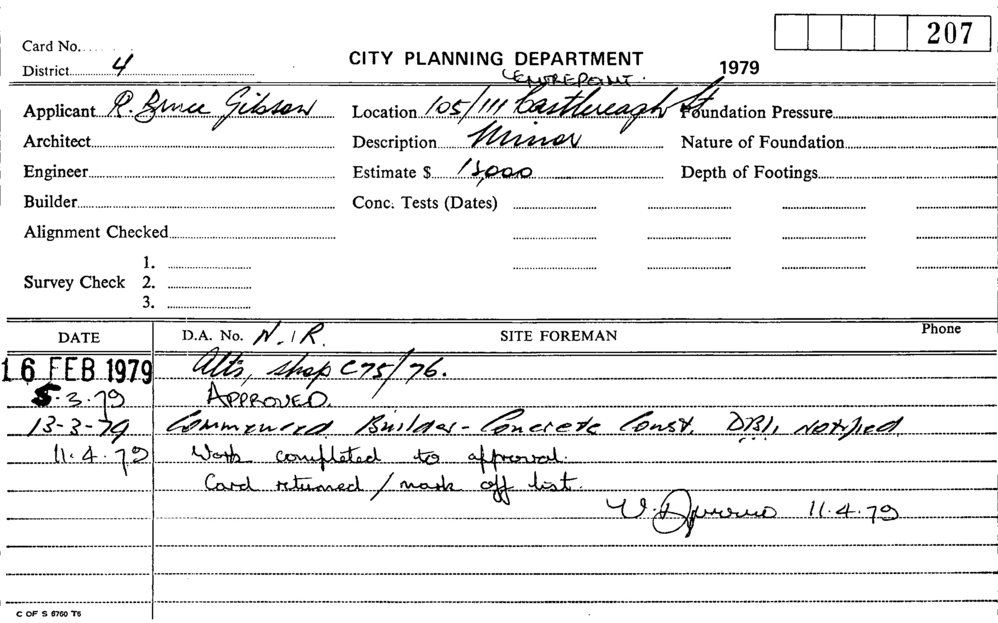 207
Card No.
CITY PLANNING DEPARTMENT
District 4
CENTREPOINT.
1979
Applicant R. Bruce Gibson Location 105/111 Castlereagh St Foundation Pressure
Architect Description Minor Nature of Foundation
Engineer Estimate $ Depth of Footings
Builder Conc. Tests (Dates)
Alignment Checked
1.
Survey Check 2.
3.
DATE D.A. No. N.I.R. SITE FOREMAN Phone
16 FEB 1979 Alts, shop C75/76.
5.3.79 APPROVED.
13-3-79 Commenced. Builder - Concrete Const. DBI, notified.
11.4.79 Work completed to approval.
Card returned / mark off list.
W. 11.4.79
C OF S 6760 T6